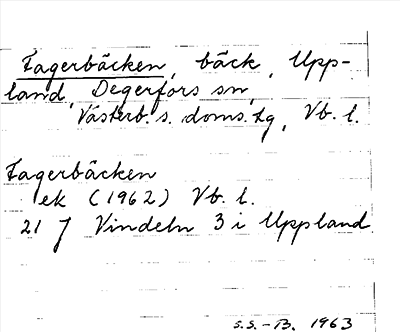 Fagerbäcken, bäck, Upp-
land, Degerfors sn,
Västerb. s. doms.tg, Vb. l.
Fagerbäcken
ek (1962) Vb. l.
21 J Vindeln 3 i Uppland
s.s. - B. 1963